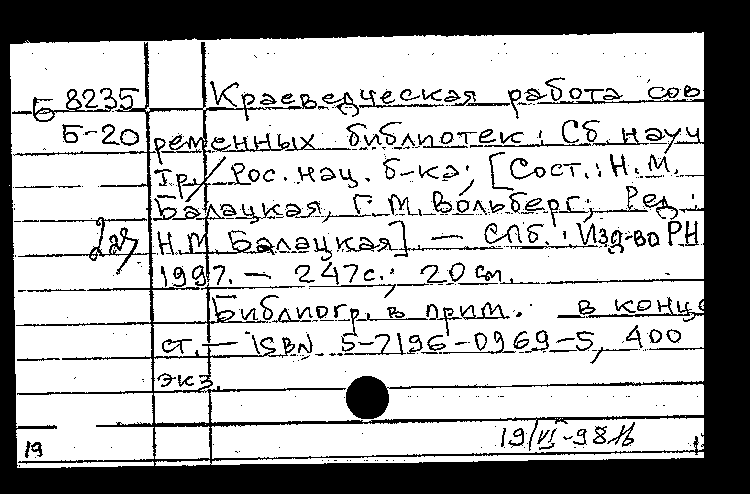 Б 8235 Краеведческая работа сов
Б-20 ременных библиотек: Сб. науч
тр. / Рос. нац. б-ка; [Сост.: Н.М.
Балацкая, Г.М. Вольберг; Ред.:
Н.М. Балацкая] — СПб.: Изд-во РН
1997. — 247с.; 20 см.
Библиогр. в прим. в конце
ст. — ISBN 5-7196-0969-5, 400
экз.
19/VI-98
19